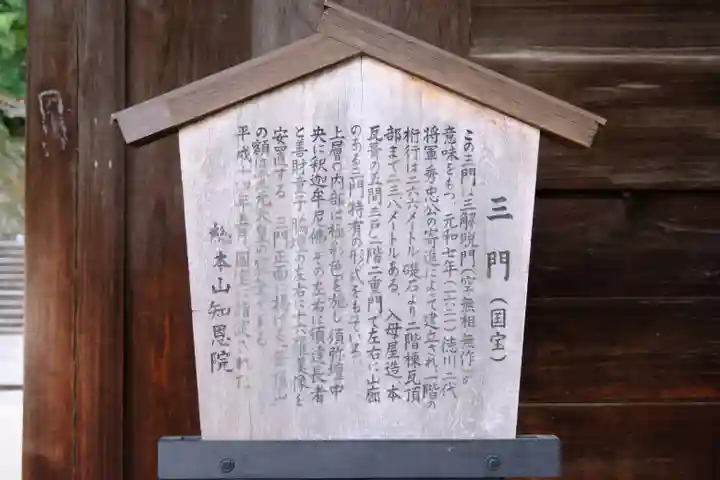 三門（国宝）
この三門は三解脱門（空無相無作）の
意味をもつ、元和七年（一六二一）徳川二代
将軍秀忠公の寄進によって建立され、一階の
桁行は二六六メートル礎石より二階棟瓦頂
部まで二三八メートルある、入母屋造、本
瓦葺の五間三戸二階二重門で左右に山廊
のある三門特有の形式をもている
上層の内部は極彩色を施し須弥壇中
央に釈迦牟尼佛その左右に須達長者
と善財童子脇壇の左右に十六羅漢像を
安置する 三門正面に掲げた華頂山
の額は霊元天皇の
平成十四年五月国宝に指定された
総本山知恩院